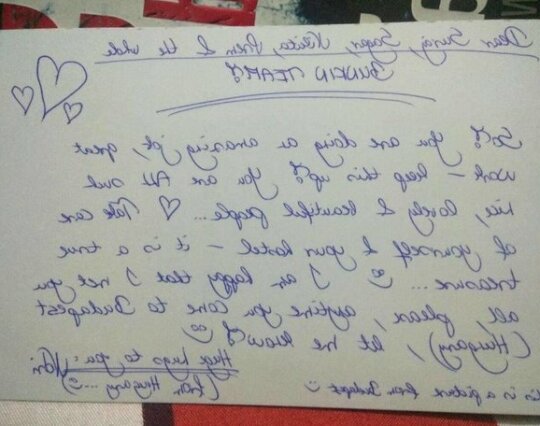 Dear Suraj, Sagar, Nikita, Prem & the whole
TEAM!
So! You are doing an amazing job, great
work - keep this up! You are ALL such
nice, lovely & beautiful people... ♡ Take care
of yourself & your hostel - it is a true
treasure... ☺ I am happy that I met you
all, please, anytime you come to Budapest
(Hungary), let me know! ☺
Huge hugs to you:
(from Hungary...☺)
is is a picture from Budapest ☺